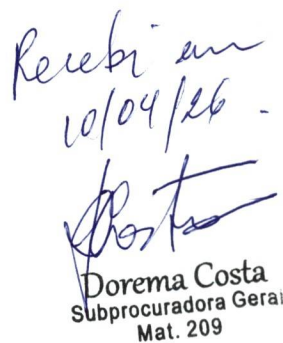 Recebi em
10/04/26.
Dorema Costa
Subprocuradora Geral
Mat. 209